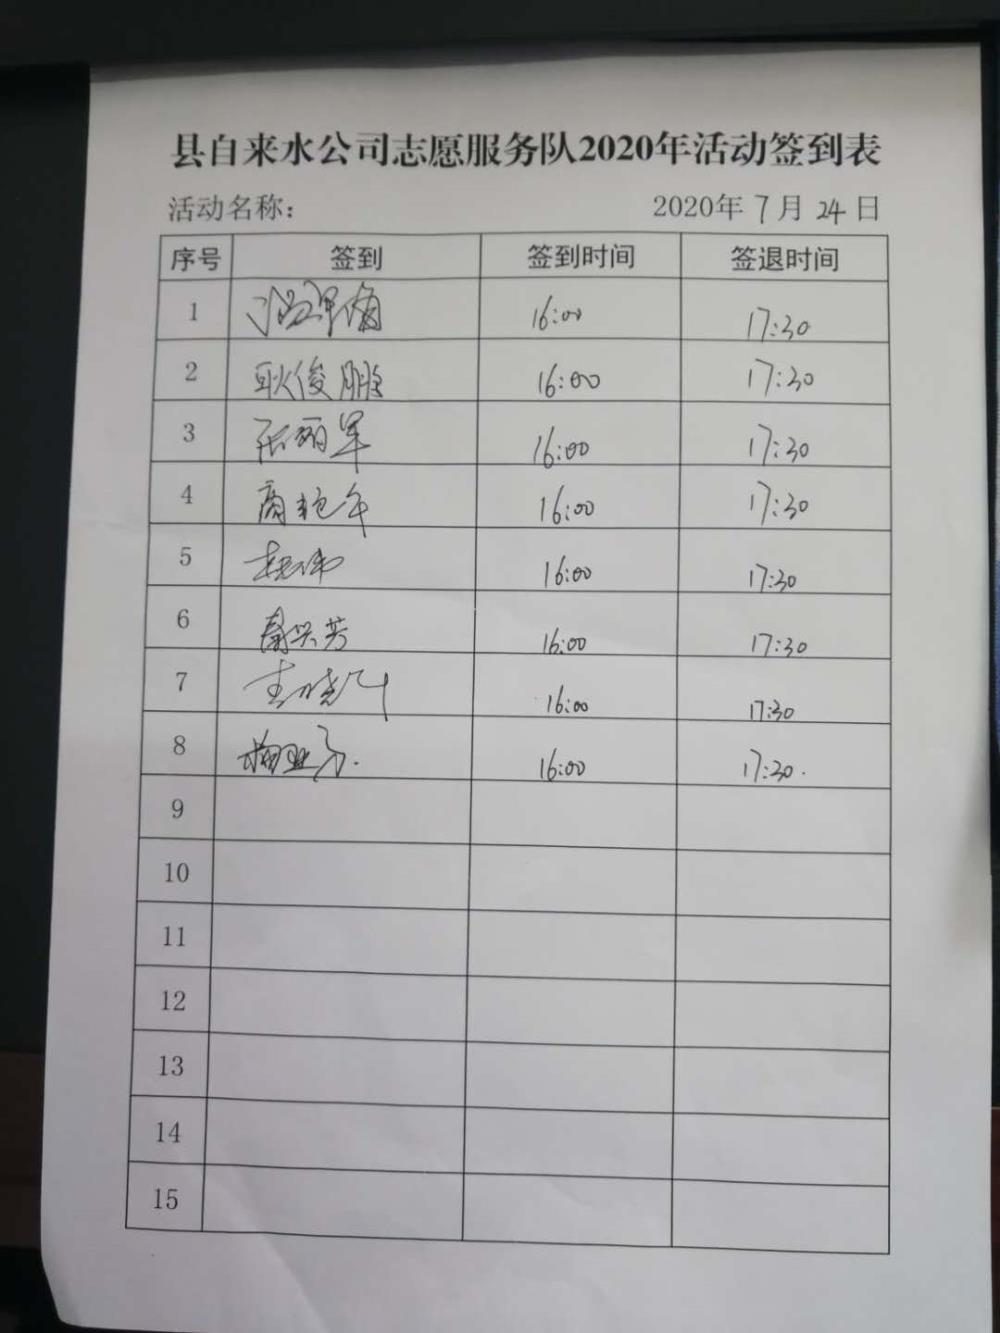 县自来水公司志愿服务队2020年活动签到表
活动名称： 2020年 7月 24日
序号 签到 签到时间 签退时间
1 16:00 17:30
2 耿俊鹏 16:00 17:30
3 张丽军 16:00 17:30
4 商艳午 16:00 17:30
5 16:00 17:30
6 秦兴芳 16:00 17:30
7 16:00 17:30
8 16:00 17:30.
9
10
11
12
13
14
15